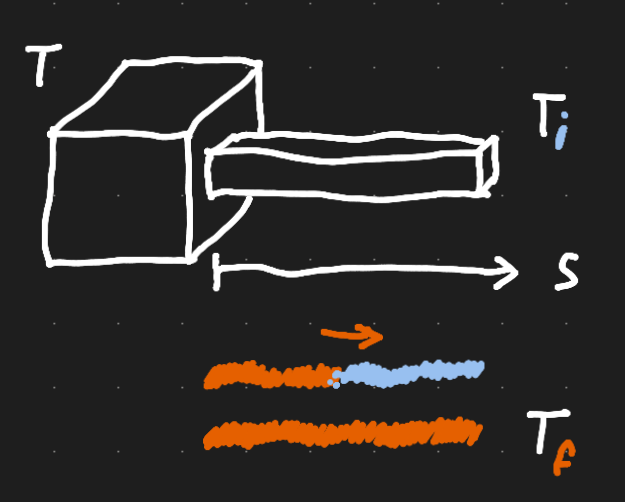 T
Ti
s
Tf